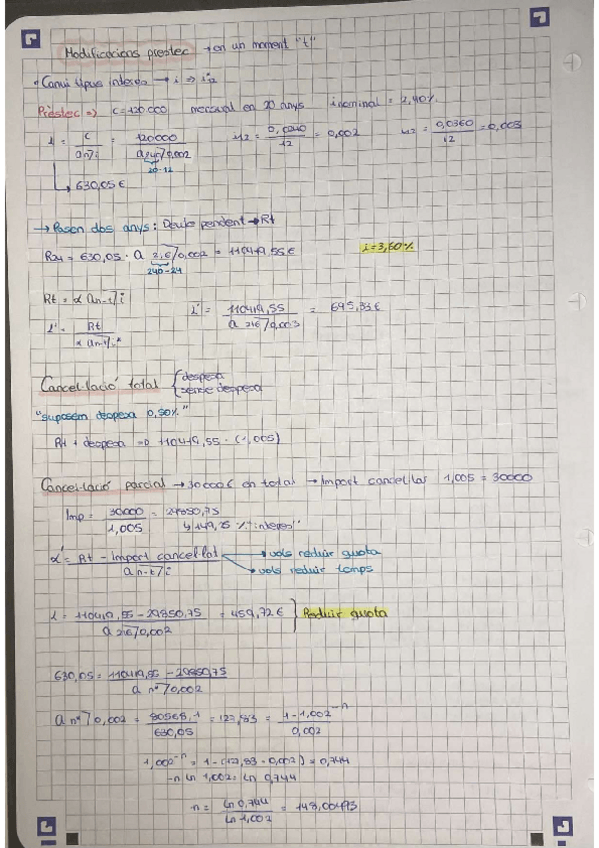 Modificacions préstec → en un moment "t"
Canvi tipus interès → i ⇒ i2
Préstec ⇒ C=120000 mensual en 20 anys i nominal = 2,40%
α = C / an¬i = 120000 / a240¬0,002 i12 = 0,0240 / 12 = 0,002 i12 = 0,0360 / 12 = 0,003
20·12
↳ 630,05€
→ Passen dos anys: Deute pendent → Rt
R24 = 630,05 · a 216¬0,002 = 110419,55€ i=3,60%
240-24
Rt = α an-t¬i
α' = 110419,55 / a 216¬0,003 = 695,33€
α' = Rt / an-t¬i*
Cancel·lació total { despesa
sense despesa
"suposem despesa 0,50%"
Rt + despesa ⇒ 110419,55 · (1,005)
Cancel·lació parcial → 30000€ en total → Import cancel·lar 1,005 = 30000
Imp = 30000 / 1,005 = 29850,75
↳ 149,25 % "interes"
α' = Rt - import cancel·lat / a n-t¬i → vols reduir quota
→ vols reduir temps
α = 110419,55 - 29850,75 / a 216¬0,002 = 459,72€ } Reduir quota
630,05 = 110419,55 - 29850,75 / a n*¬0,002
a n*¬0,002 = 80568,1 / 630,05 = 127,83 = 1-1,002^-n / 0,002
1,002^-n = 1-(127,83 · 0,002) = 0,744
-n ln 1,002 = ln 0,744
-n = ln 0,744 / ln 1,002 = 148,00493